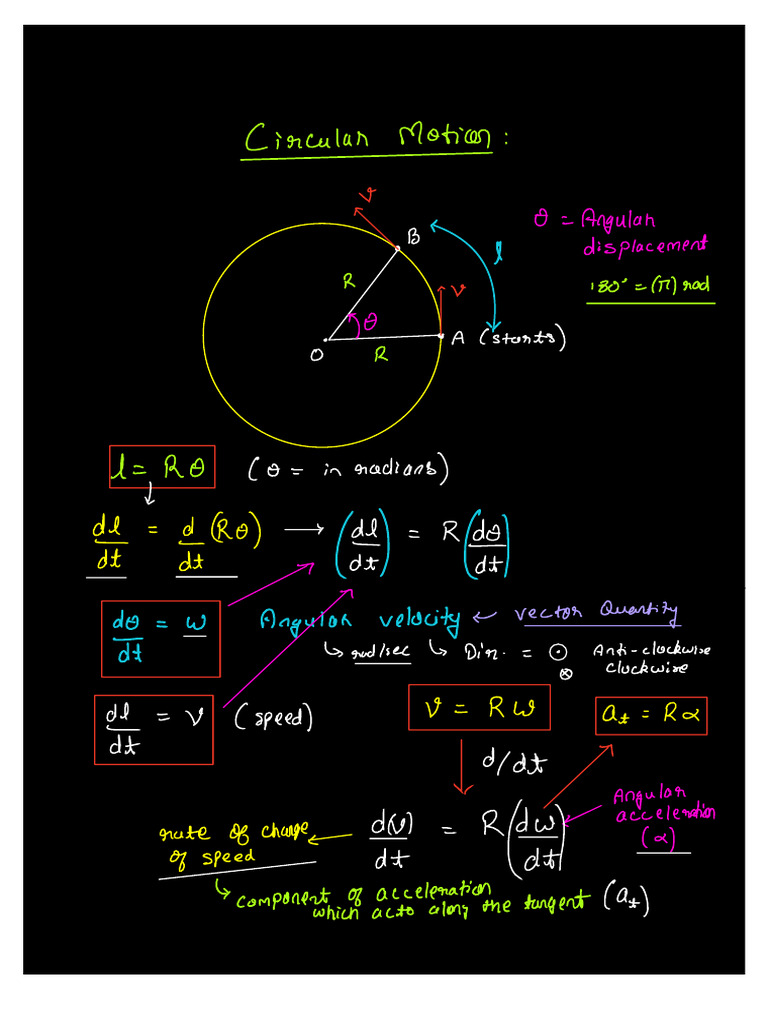 Circular Motion :
v
B
θ = Angular
displacement
l
180° = (π) rad
R
v
θ
A (starts)
O
R
l = Rθ (θ = in radians)
dl/dt = d/dt (Rθ) → (dl/dt) = R (dθ/dt)
dθ/dt = ω Angular velocity ← vector Quantity
↳ rad/sec ↳ Dir. = ⊙ Anti-clockwise
⊗ clockwise
dl/dt = v (speed)
v = Rω
a_t = Rα
d/dt
Angular
acceleration
(α)
rate of change
of speed
← d(v)/dt = R (dω/dt)
↳ component of acceleration
which acts along the tangent (a_t)